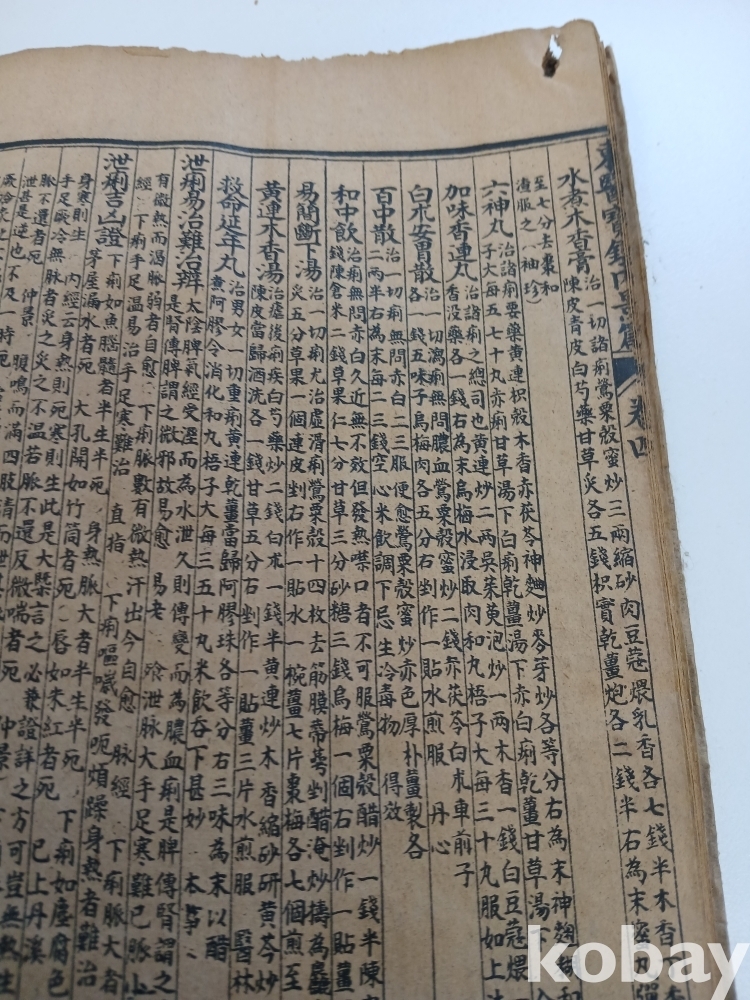 東醫寶鑑內景篇 卷四
水煮木香膏 治一切諸痢鶯粟殼蜜炒三兩縮砂肉豆蔲煨乳香各七錢半木香
陳皮青皮白芍藥甘草炙各五錢枳實乾薑炮各二錢半右為末蜜丸彈
至七分去棗和
渣服之 袖珍
六神丸 治諸痢要藥黄連枳殼木香赤茯苓神麯炒麥芽炒各等分右為末神麯糊和
丸子大每五七十丸赤痢甘草湯下白痢乾薑湯下赤白痢乾薑甘草湯 入
加味香連丸 治諸痢之總司也黄連炒二兩吳茱萸泡炒一兩木香一錢白豆蔲煨一
香沒藥各一錢右為末烏梅水浸取肉和丸梧子大每三十丸服如上法
白朮安胃散 治一切瀉痢無問膿血鶯粟殼蜜炒二錢赤茯苓白朮車前子
各一錢五味子烏梅肉各五分右剉作一貼水煎服 丹心
百中散 治一切痢無問赤白二三服便愈鶯粟殼蜜炒赤色厚朴薑製各
二兩半右為末每二三錢空心米飲調下忌生冷毒物 得效
和中飲 治痢無問赤白久近無不效但發熱噤口者不可服鶯粟殼醋炒一錢半陳皮
錢陳倉米二錢草果仁七分甘草三分砂糖三錢烏梅一個右剉作一貼薑
易簡斷下湯 治一切痢尤治虛滑痢鶯粟殼十四枚去筋膜蒂萼剉醋淹炒擣為麤
炙五分草果一個連皮剉右作一貼水一椀薑七片棗梅各七個煎至
黄連木香湯 治虛後痢疾白芍藥炒二錢白朮一錢半黄連炒木香縮砂研黄芩炒
陳皮當歸酒洗各一錢甘草五分右剉作一貼薑三片水煎服 醫林
救命延年丸 治男女一切重痢黄連乾薑當歸阿膠珠各等分右三味為末以醋
煮阿膠令消化和丸梧子大每三五十丸米飲吞下甚妙 本事
泄痢易治難治辨 太陰脾氣經受溼而為水泄久則傳變而為膿血痢是脾傳腎謂之
是腎傳脾謂之微邪故易愈 易老 飱泄脉大手足寒難已脉小
有微熱而渴脉弱者自愈 下痢脉數有微熱汗出今自愈 脉經 下痢脉大者
經 下痢手足温易治手足寒難治 直指 下痢嘔噦發呃煩躁身熱者難治
泄痢吉凶證 下痢如魚腦髓者半生半死 身熱脉大者半生半死 下痢如塵腐色
茅屋漏水者死 大孔開如竹筒者死 唇如朱紅者死 已上丹溪
身寒則生 內經云身熱則死寒則生此是大槩言之必兼證詳之方可豈無熱生
手足厥冷無脉者炙之不温若脉不還反微喘者死 仲景
脉不還者死 仲景 腹鳴而滿四肢清而泄其脉
泄甚是逆也不及一時死